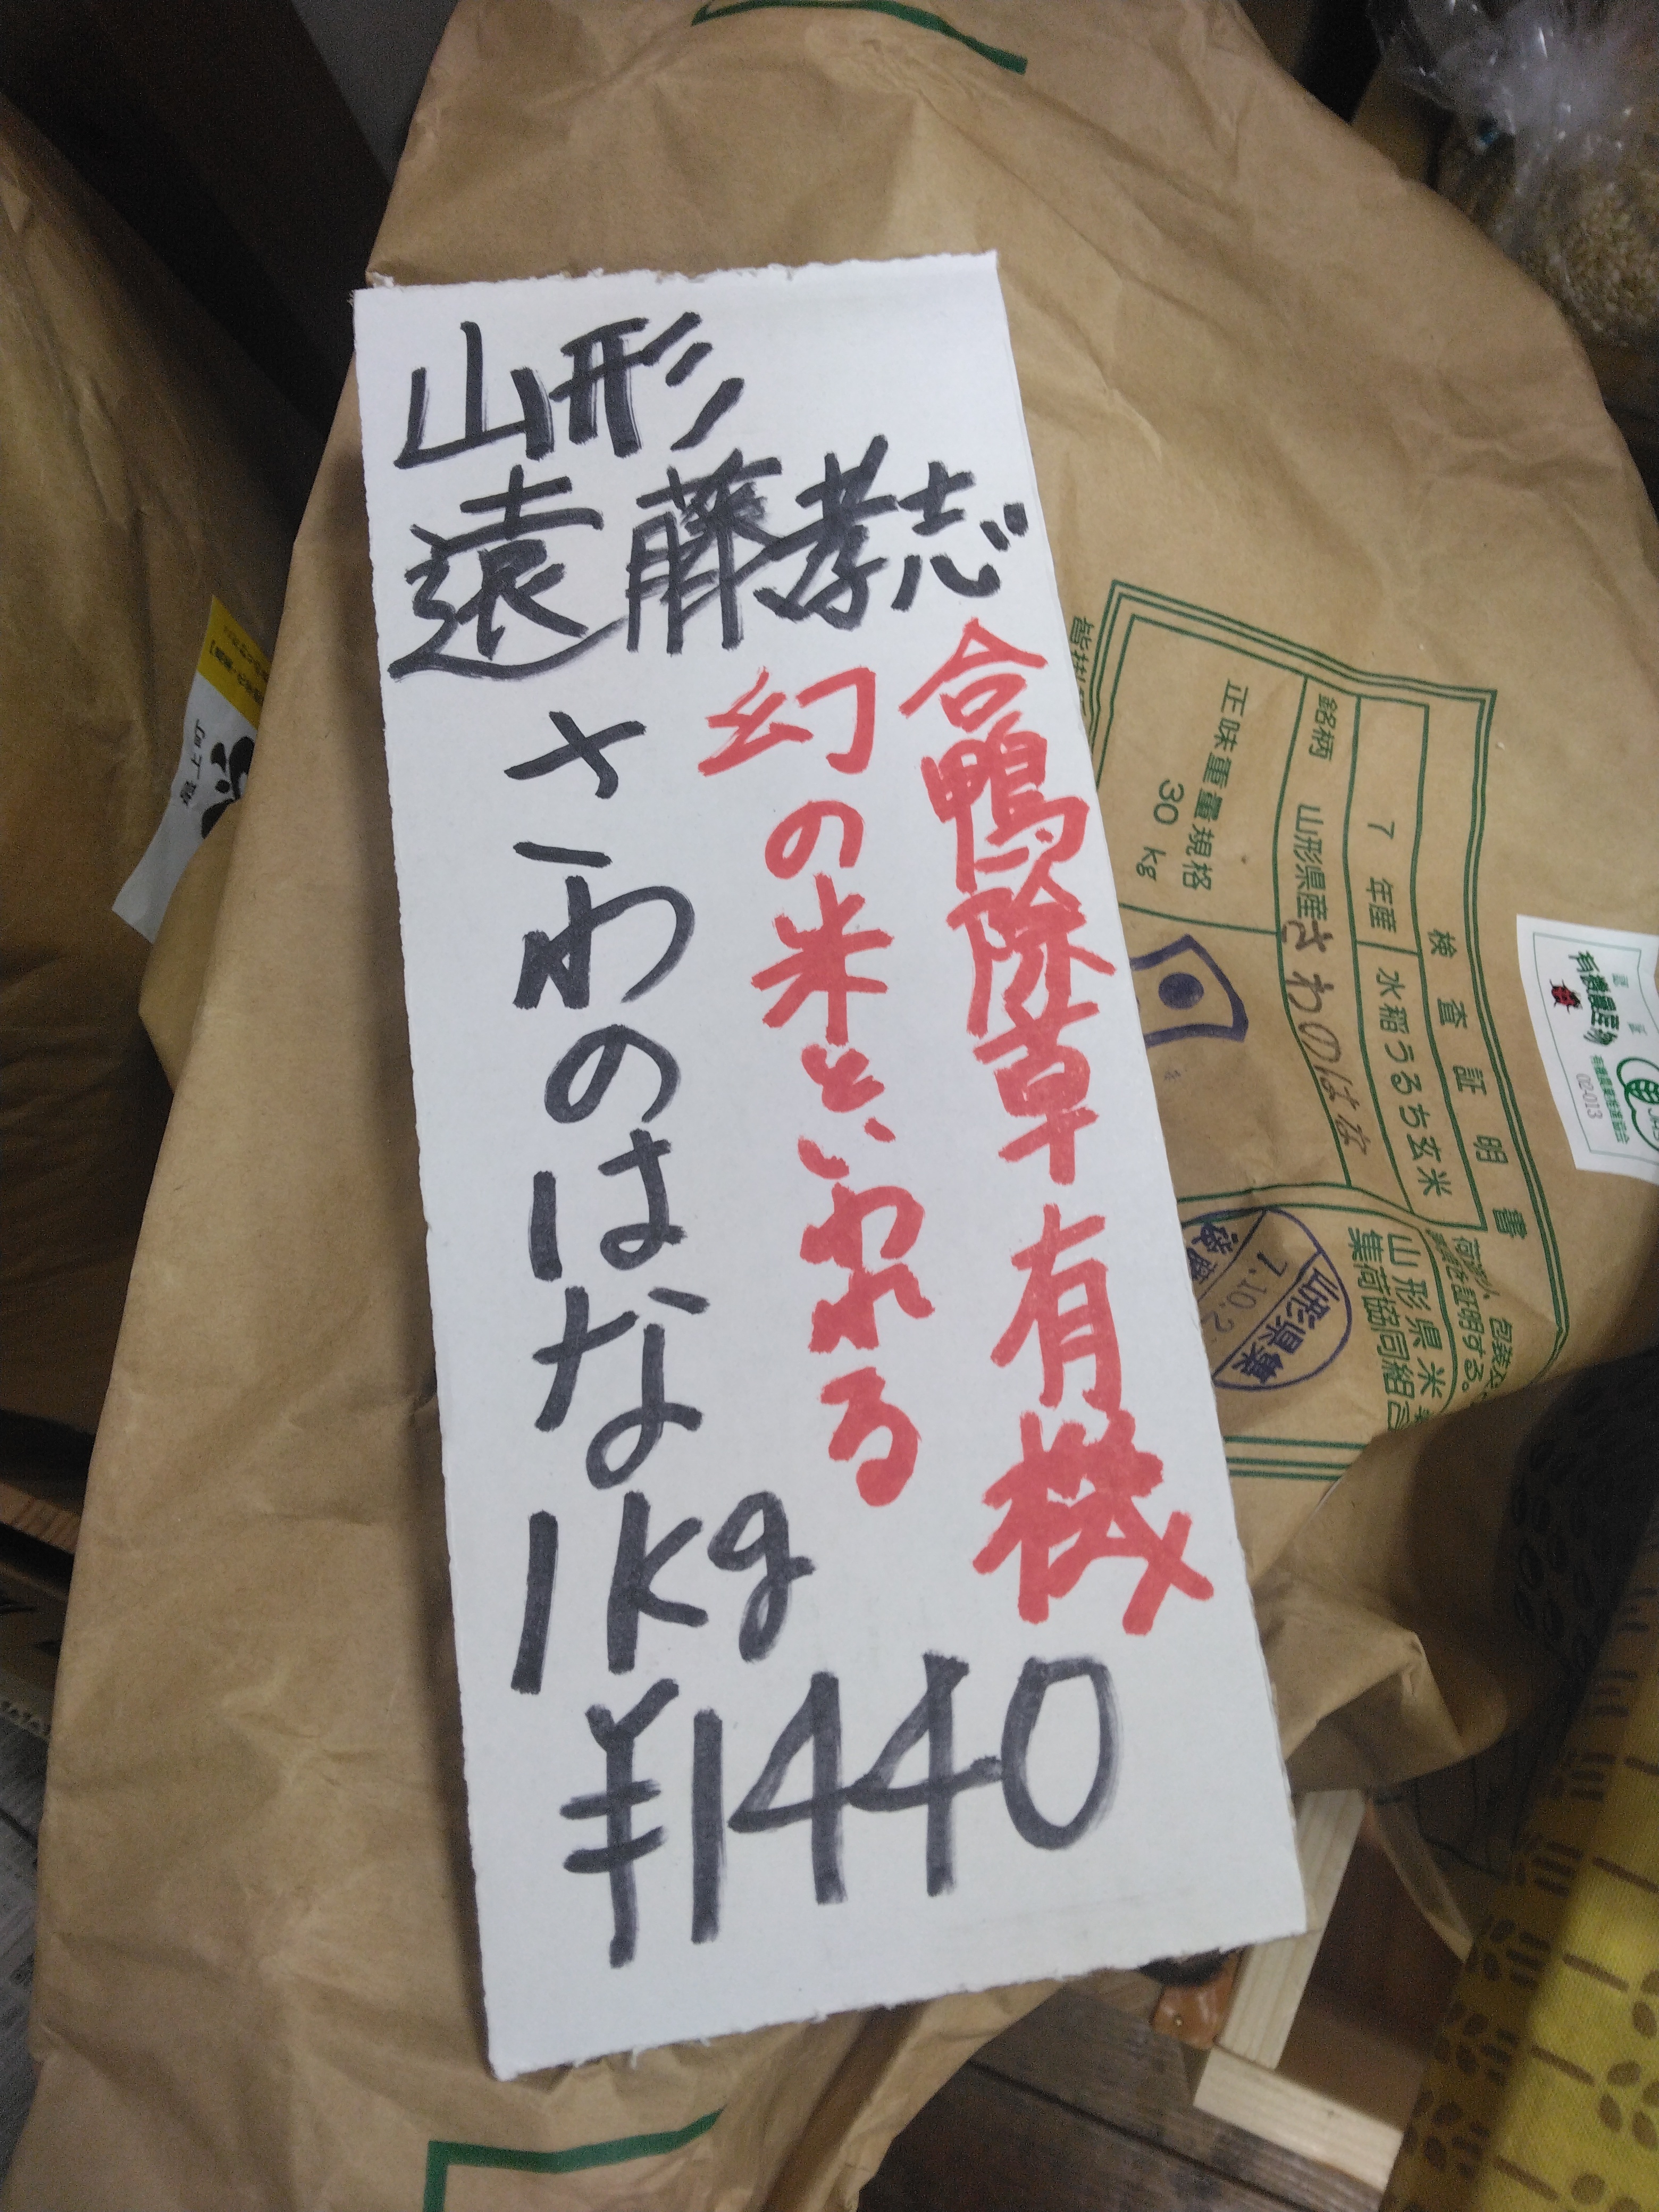 山形
遠藤孝志
合鴨除草有機
幻の米といわれる
さわのはな
1kg
¥1440
検査証明書
7年産
水稲うるち玄米
銘柄
山形県産さわのはな
正味重量規格
30kg
山形県米
集荷協同組合
証明する。
山形県集
7.10.2
有機農産物
02-013